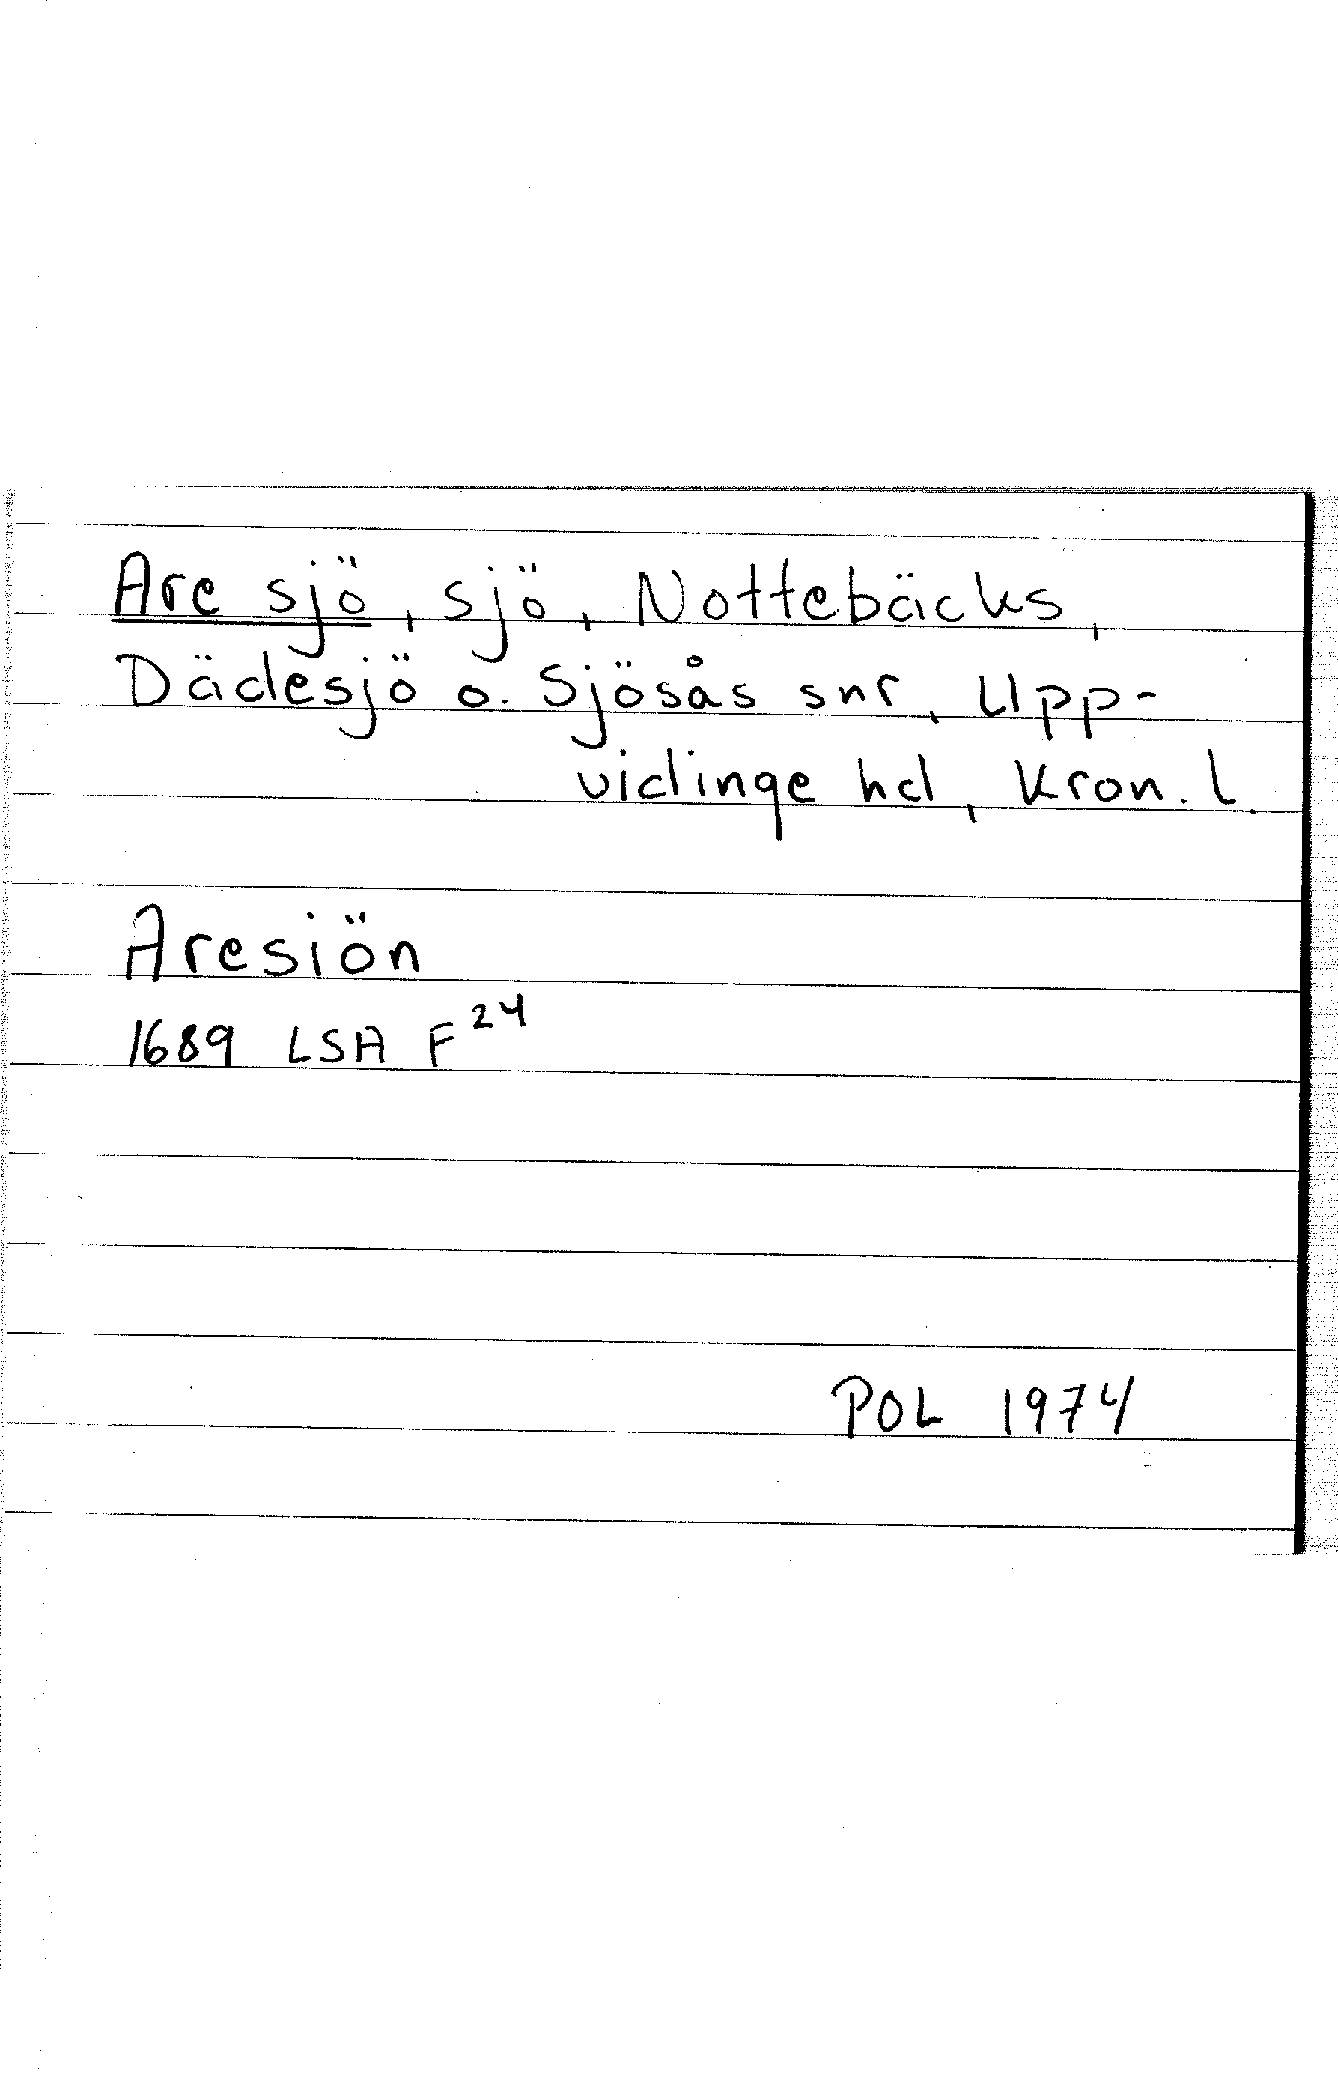 Are sjö, sjö, Nottebäcks,
Dädesjö o. Sjösås snr, Upp-
vidinge hd, Kron. l.
Aresiön
1689 LSA F24
POL 1974